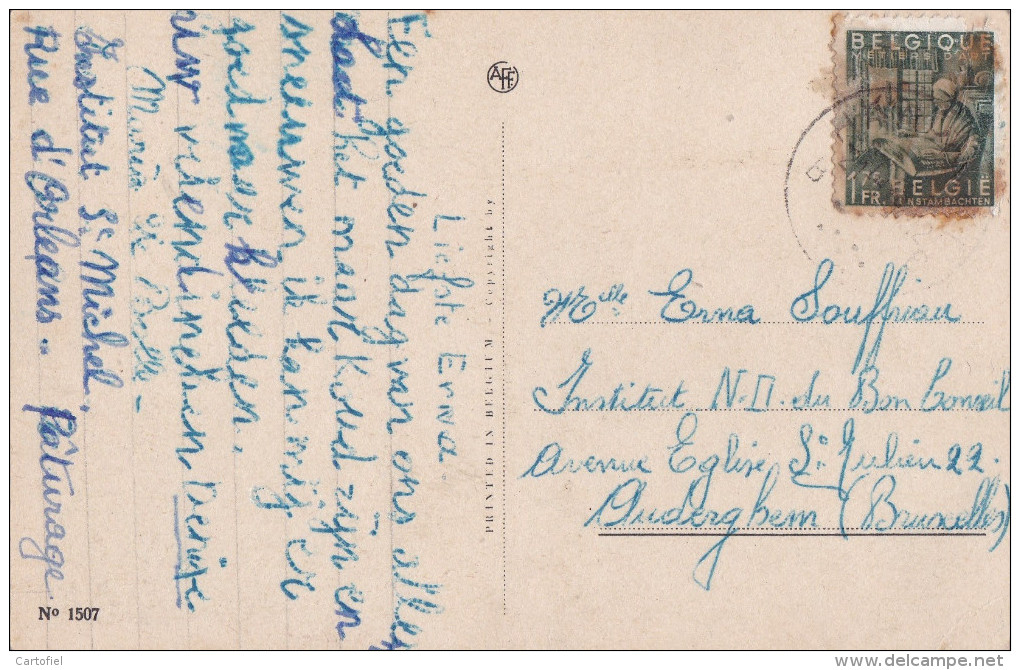 Liefste Erna.
Een goeden dag van ons allen
het maar koud zijn en
ik kan mij er
goed maar
uw vriendinneken Denise
Maria de
Institut St Michel.
Rue d'Orleans. Pâturage
No 1507
PRINTED IN BELGIUM Copyright by
AFF.
BELGIQUE
1 75 FR. BELGIË
KUNSTAMBACHTEN
Melle Erna Souffriau
Institut N.D. du Bon Conseil
Avenue Eglise St Julien 22.
Auderghem (Bruxelles)
Cartofiel
delcampe.net